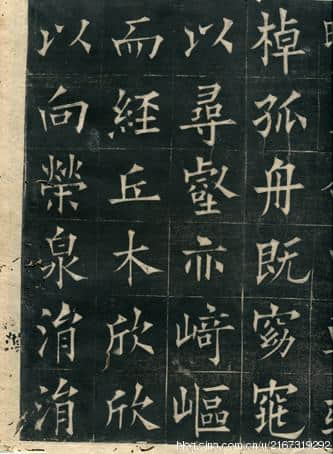 棹孤舟既窈窕
以尋壑亦﨑嶇
而経丘木欣欣
以向榮泉涓涓
blog.sina.com.cn/u/2167319292